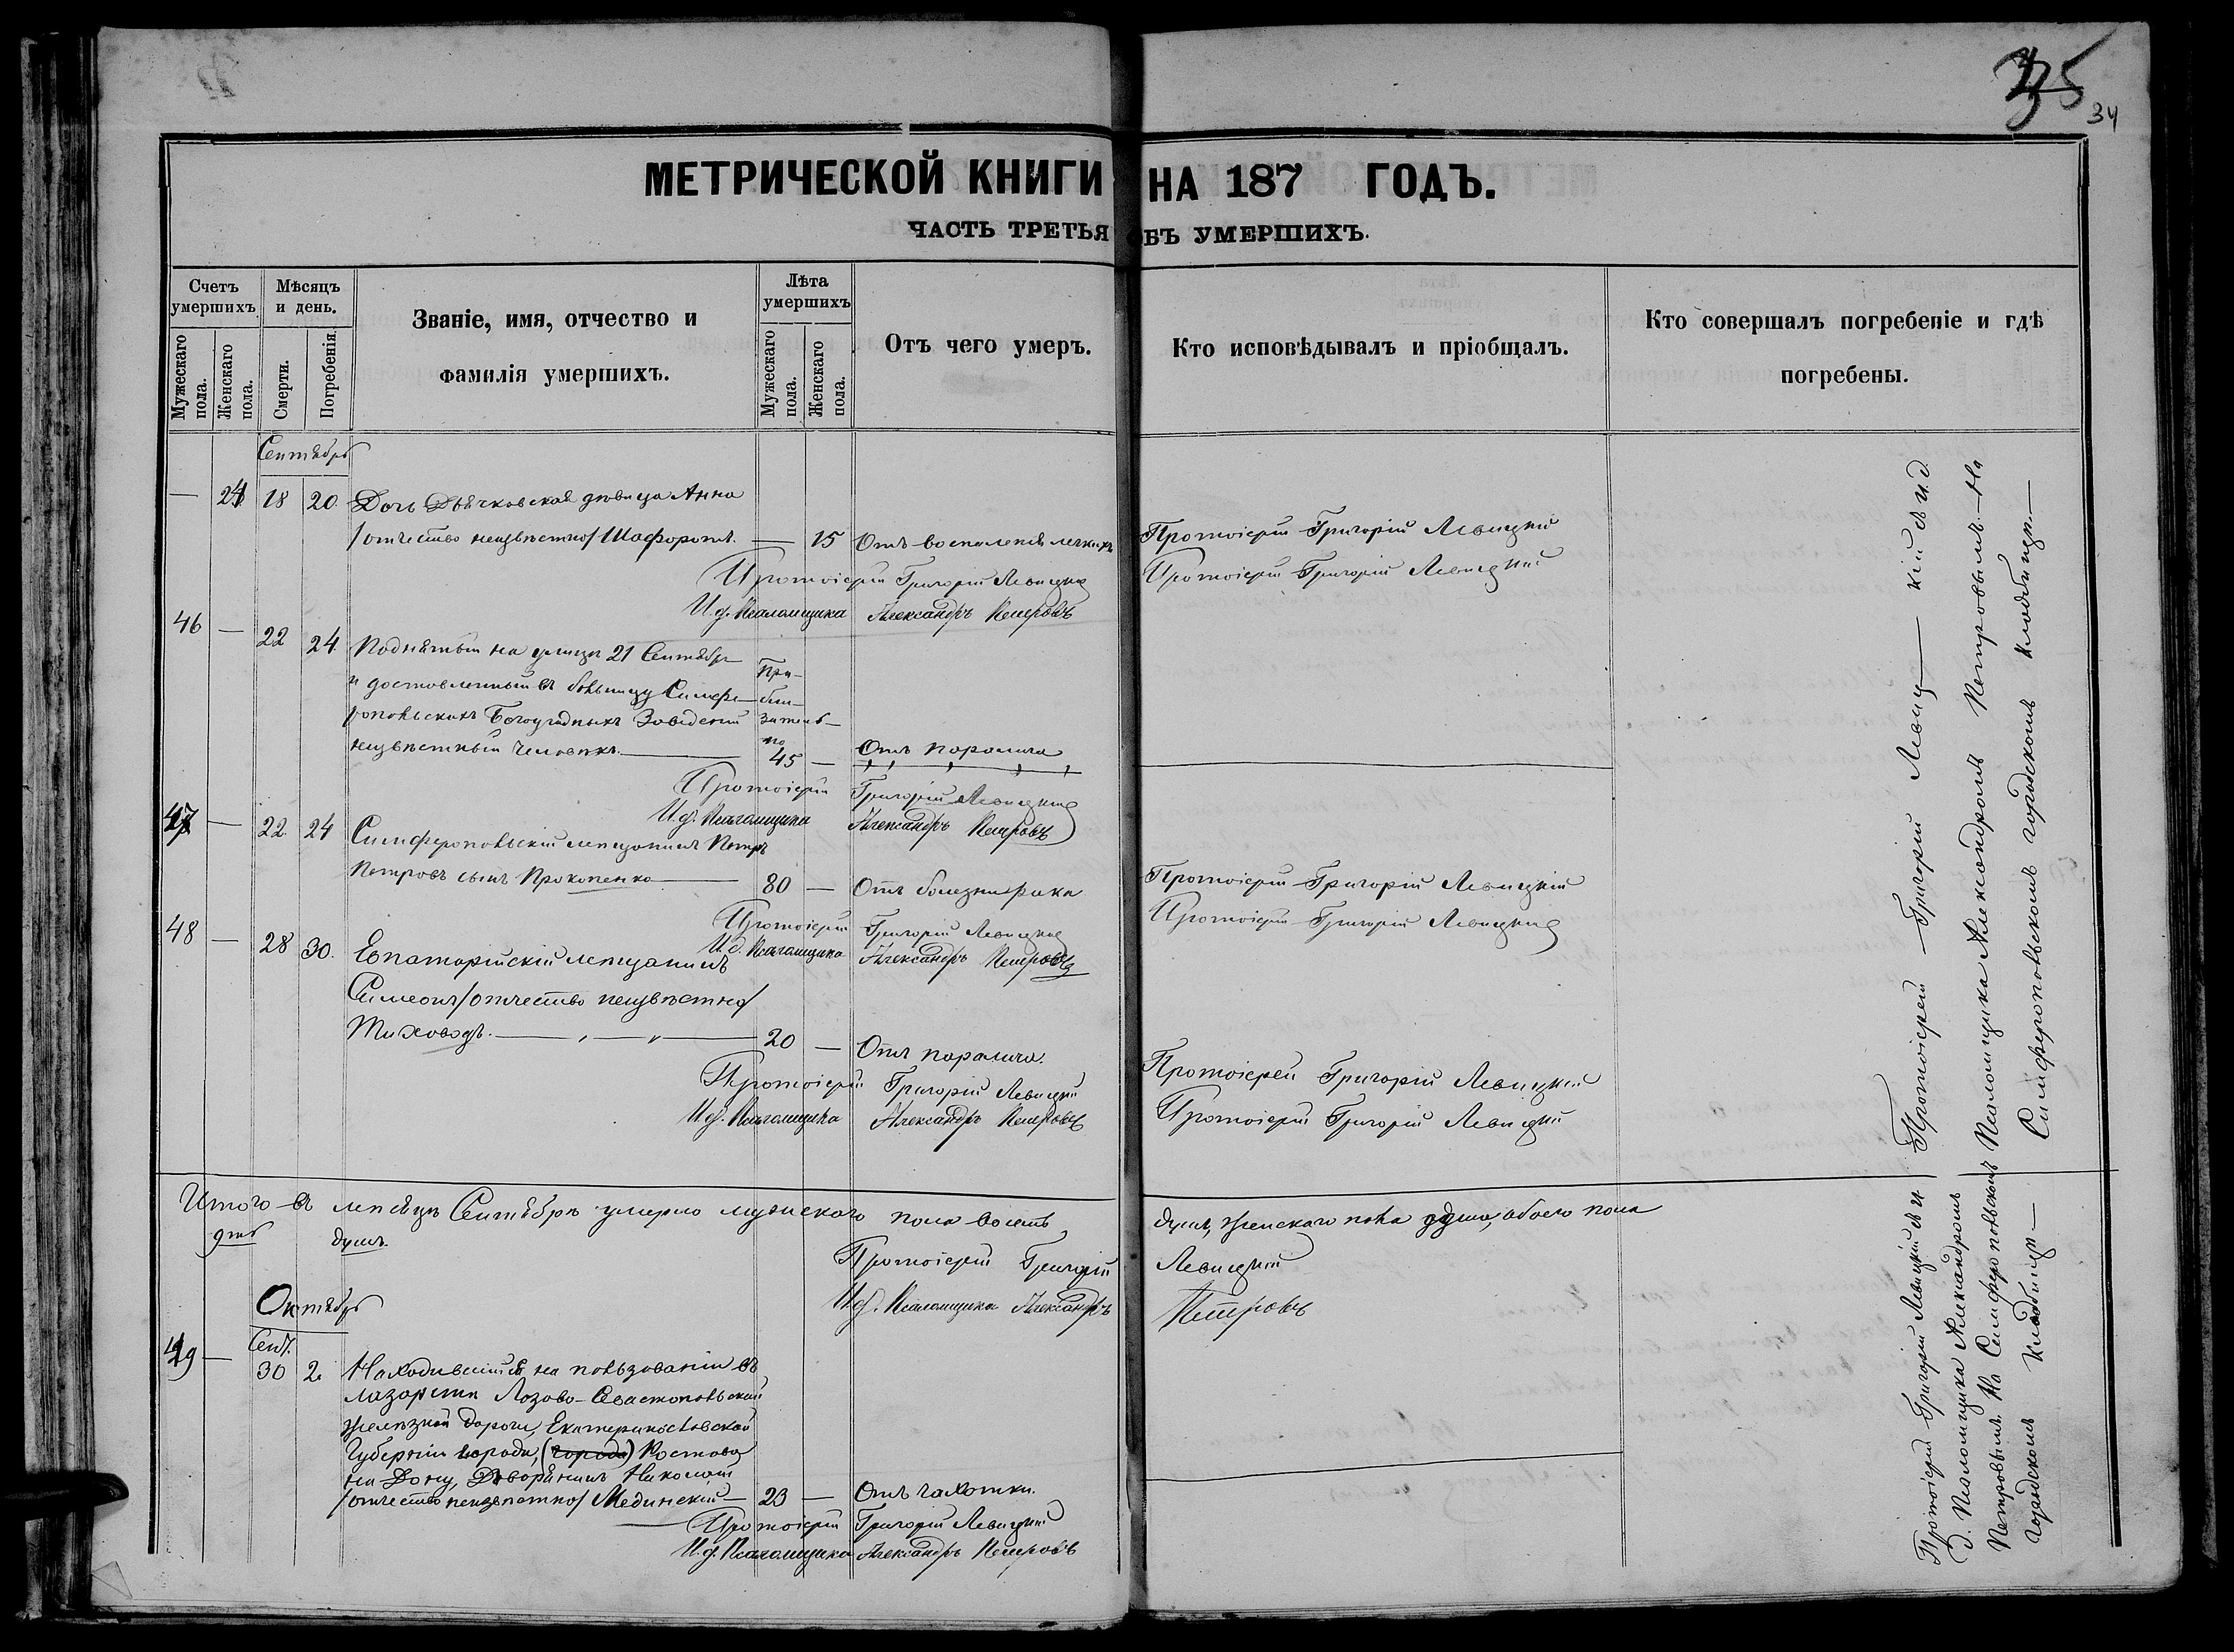 35
34
МЕТРИЧЕСКОЙ КНИГИ НА 187 ГОДЪ.
ЧАСТЬ ТРЕТЬЯ ОБЪ УМЕРШИХЪ.
Счетъ умершихъ.
Мужескаго пола.
Женскаго пола.
Мѣсяцъ и день.
Смерти.
Погребенія.
Званіе, имя, отчество и
фамилія умершихъ.
Лѣта умершихъ
Мужескаго пола.
Женскаго пола.
Отъ чего умеръ.
Кто исповѣдывалъ и пріобщалъ.
Кто совершалъ погребеніе и гдѣ
погребены.
Сентябрь
— 18 20. Дочь Дьячковская дѣвица Анна
/отчество неизвѣстно/ — 15 Отъ воспаленія легкихъ Протоіерей Григорій Левицкій
Протоіерей Григорій Левицкій Протоіерей Григорій Левицкій
И.д. Псаломщика Александръ Петровъ
46 — 22 24. Поднятый на улицѣ 21 Сентября
и доставленный въ больницу Симфе-
ропольскихъ Богоугодныхъ Заведеній
неизвѣстный человѣкъ. — При-
бли-
зитель-
но
45 — Отъ паралича
Протоіерей Григорій Левицкій
И.д. Псаломщика Александръ Петровъ
47 — 22 24 Симферопольскій мещанинъ Петръ
Петровъ сынъ Прокопенко — 80 — Отъ болезни рака Протоіерей Григорій Левицкій
Протоіерей Григорій Левицкій Протоіерей Григорій Левицкій
И.д. Псаломщика Александръ Петровъ
48 — 28 30. Евпаторійскій мещанинъ
Симеонъ /отчество неизвѣстно/
Тиховодъ. — 20 — Отъ паралича. Протоіерей Григорій Левицкій
Протоіерей Григорій Левицкій Протоіерей Григорій Левицкій
И.д. Псаломщика Александръ Петровъ
Протоіерей Григорій Левиц— кій и И.д.
Псаломщика Александромъ Петровымъ. На
Симферопольскомъ городскомъ кладбищѣ.—
Итого въ мѣсяцѣ Сентябрѣ умерло мужескаго пола восемь душъ, женскаго пола одна, обоего пола
девять душъ.
Протоіерей Григорій Левицкій
И.д. Псаломщика Александръ Петровъ
Октябрь
Сент.
49 — 30 2. Находившійся на пользованіи въ
лазаретѣ Лозово-Севастопольской
желѣзной дороги, Екатеринославской
Губерніи города, (города) Ростова
на Дону, Дворянинъ Николай
/отчество неизвѣстно/ Мединскій — 23 — Отъ чахотки.
Протоіерей Григорій Левицкій
И.д. Псаломщика Александръ Петровъ
Протоіерей Григорій Левицкій и И.
д. Псаломщика Александромъ
Петровымъ. На Симферопольскомъ
городскомъ кладбищѣ —